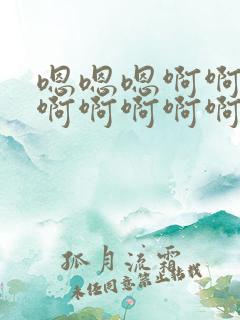 嗯嗯嗯啊啊
啊啊啊啊啊
孤月流霜
未经同意禁止转载